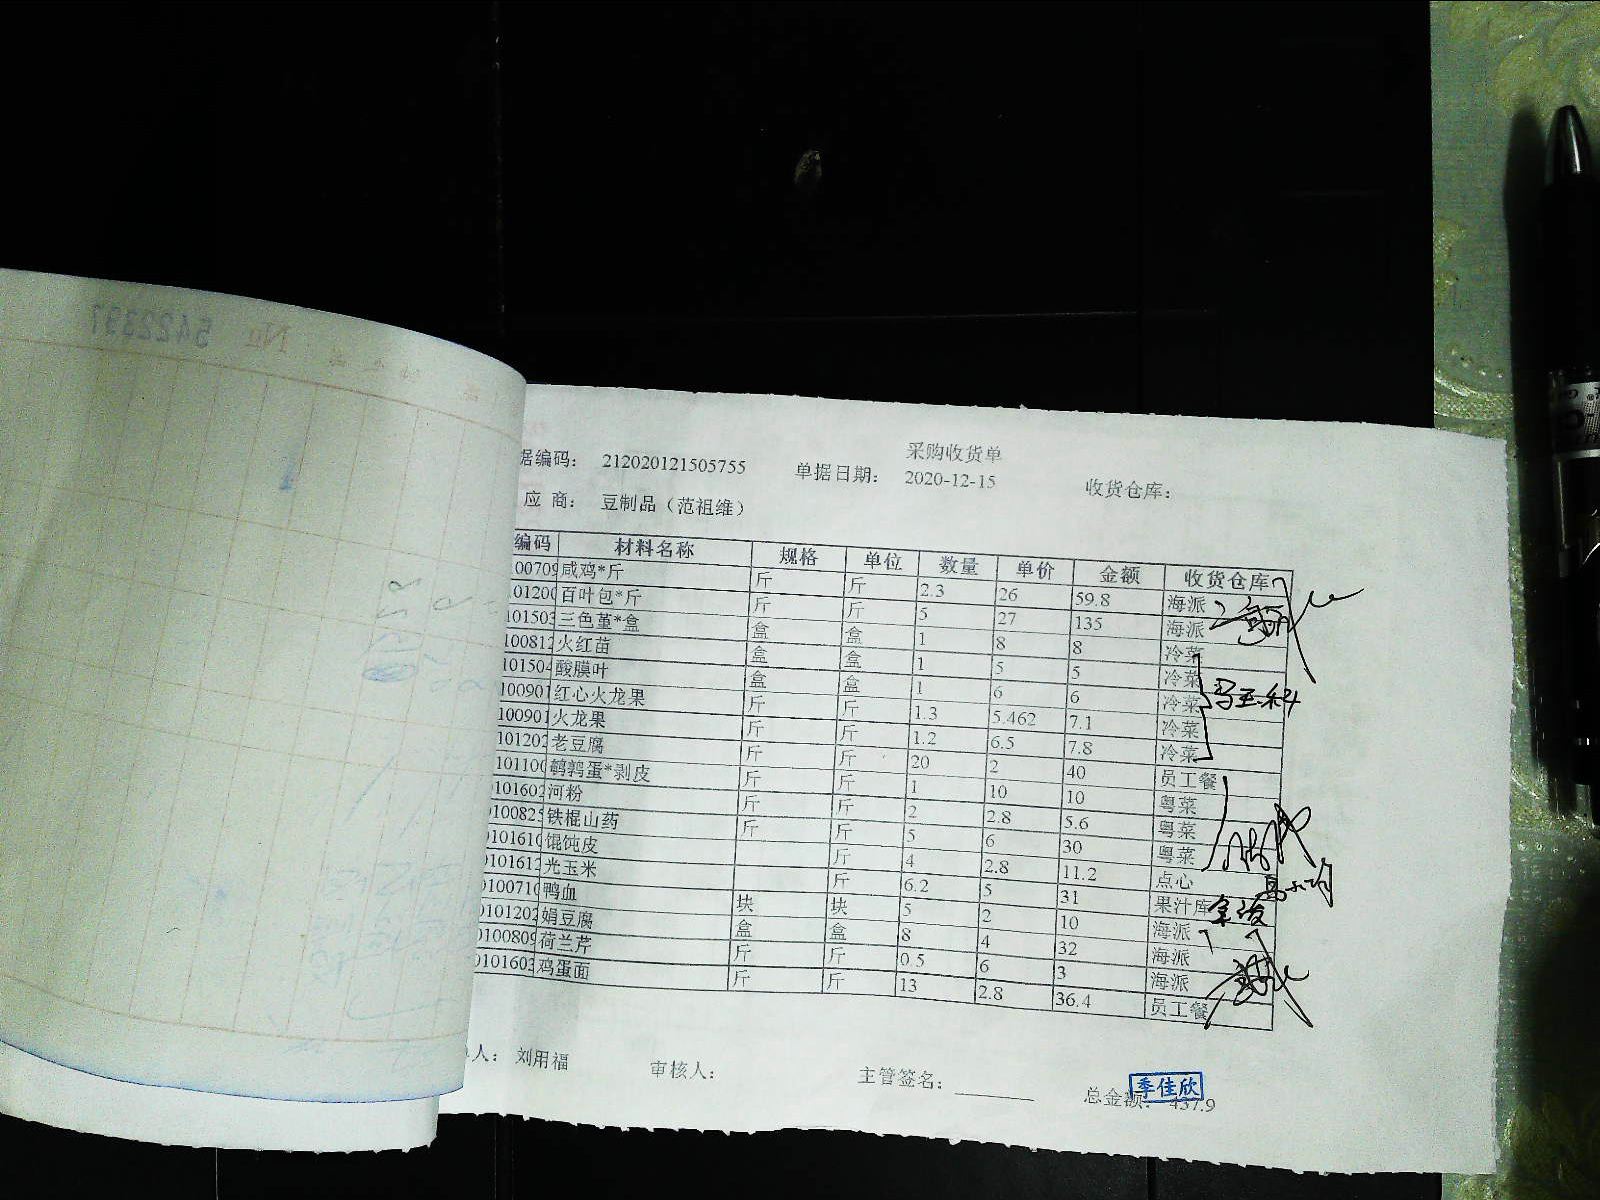 采购收货单
据编码： 212020121505755 单据日期： 2020-12-15 收货仓库：
应 商： 豆制品（范祖维）
编码 材料名称 规格 单位 数量 单价 金额 收货仓库
00709 咸鸡*斤 斤 斤 2.3 26 59.8 海派
01200 百叶包*斤 斤 斤 5 27 135 海派
101503 三色堇*盒 盒 盒 1 8 8 冷菜
100812 火红苗 盒 盒 1 5 5 冷菜
101504 酸膜叶 盒 盒 1 6 6 冷菜
100901 红心火龙果 斤 斤 1.3 5.462 7.1 冷菜
100901 火龙果 斤 斤 1.2 6.5 7.8 冷菜
101202 老豆腐 斤 斤 20 2 40 员工餐
101100 鹌鹑蛋*剥皮 斤 斤 1 10 10 粤菜
0101602 河粉 斤 斤 2 2.8 5.6 粤菜
0100825 铁棍山药 斤 斤 5 6 30 粤菜
0101610 馄饨皮 斤 4 2.8 11.2 点心
0101612 光玉米 斤 6.2 5 31 果汁库
0100710 鸭血 块 块 5 2 10 海派
0101202 娟豆腐 盒 盒 8 4 32 海派
0100809 荷兰芹 斤 斤 0.5 6 3 海派
0101603 鸡蛋面 斤 斤 13 2.8 36.4 员工餐
人： 刘用福 审核人： 主管签名：
总金额： 437.9
季佳欣
No 5422397